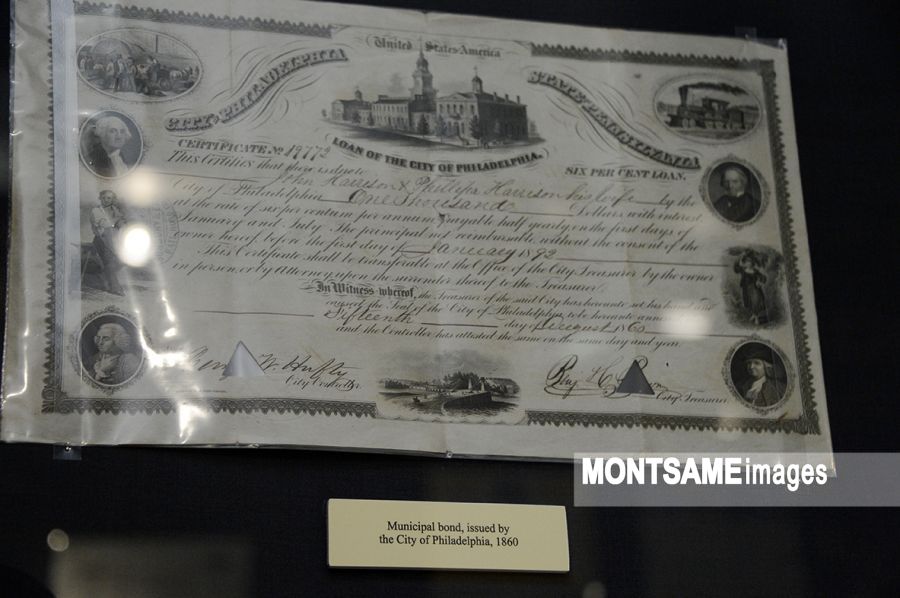 United States America
CITY OF PHILADELPHIA
STATE OF PENNSYLVANIA
LOAN OF THE CITY OF PHILADELPHIA.
CERTIFICATE No 19772
SIX PER CENT LOAN.
This Certifies that there is due to
John Harrison & Phillips Harrison his wife by the
City of Philadelphia One Thousand Dollars with interest
at the rate of six per centum per annum payable half yearly, on the first days of
January and July. The principal not reimbursable without the consent of the
owner hereof, before the first day of January 1892
This Certificate shall be transferable at the Office of the City Treasurer by the owner
in person, or by Attorney, upon the surrender hereof to the Treasurer.
In Witness whereof, the Treasurer of the said City has hereunto set his hand and
caused the Seal of the City of Philadelphia, to be hereunto
Fifteenth day August 1860
and the Controller has attested the same on the same day and year.
City Controller.
City Treasurer
MONTSAMEimages
Municipal bond, issued by
the City of Philadelphia, 1860